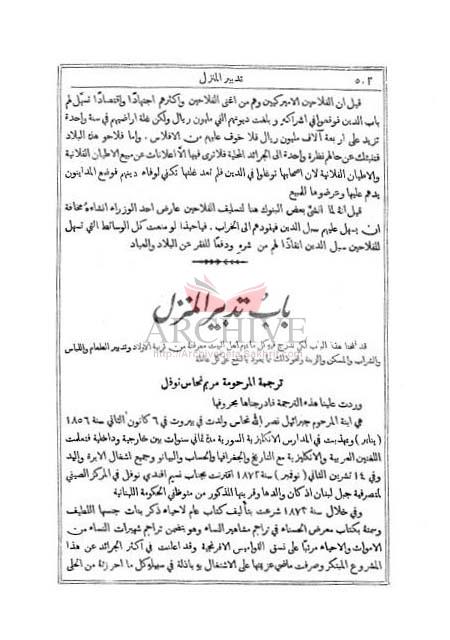 تدبير المنزل
٥٠٢
قيل ان الفلاحين الاميركيين وهم من اغنى الفلاحين واكثرهم اجتهادًا واقتصادًا تسهّل لهم
باب الدين فوقعوا في اشراكه وبلغت ديونهم الفي مليون ريال ولكن غلة اراضيهم في سنة واحدة
تزيد على اربعة آلاف مليون ريال فلا خوف عليهم من الافلاس . واما فلاحو هذه البلاد
فننبئك عن حالهم نظرة واحدة الى الجرائد المحلية فلا ترى فيها الاّ اعلانات عن مبيع الاطيان الفلانية
والاطيان الفلانية لان اصحابها توغلوا في الدين فلم تعد غلتها تكفي لوفاء ديونهم فوضع المداينون
يدهم عليها وعرضوها للمبيع
قيل انهُ لما انشئ بعض البنوك هنا لتسليف الفلاحين عارض احد الوزراء انشاءهُ مخافة
ان يسهل عليهم سبل الدين فيقودهم الى الخراب . فيا حبذا لو منعت كل الوسائط التي تسهل
للفلاحين سبل الدين انقاذًا لهم من شرهِ ودفعًا للفقر عن البلاد والعباد
باب تدبير المنزل
ARCHIVE
http://Archivebeta.Sakhrit.com
قد فتحنا هذا الباب لكي ندرج فيه كل ما يهم اهل البيت معرفته من تربية الاولاد وتدبير الطعام واللباس
والشراب والمسكن والزينة ونحو ذلك مما يعود بالنفع على كل عائلة
ترجمة المرحومة مريم نحاس نوفل
وردت علينا هذه الترجمة فادرجناها بحروفها
هي ابنة المرحوم جبرائيل نصر الله نحاس ولدت في بيروت في ٦ كانون الثاني سنة ١٨٥٦
(يناير) وتهذبت في المدارس الانكليزية السورية مدة ثماني سنوات بين خارجية وداخلية فتعلمت
اللغتين العربية والانكليزية مع التاريخ والجغرافيا والحساب والبيانو وجميع اشغال الابرة واليد
وفي ١٤ تشرين الثاني (نوفمبر) سنة ١٨٧٢ اقترنت بجناب نسيم افندي نوفل في المركز الصيفي
لمتصرفية جبل لبنان اذ كان والدها وقرينها المذكور من متوظفي الحكومة اللبنانية
وفي خلال سنة ١٨٧٣ شرعت بتأليف كتاب عام لاحياء ذكر بنات جنسها اللطيف
وسمته بكتاب معرض الحسناء في تراجم مشاهير النساء وهو يتضمن تراجم شهيرات النساء من
الاموات والاحياء مرتبًا على نسق القواميس الافرنجية وقد اعلنت في اكثر الجرائد عن هذا
المشروع المبتكر وصرفت ماضي عزيمتها على الاشتغال به باذلة في سبيله كل ما احرزته من الحلى